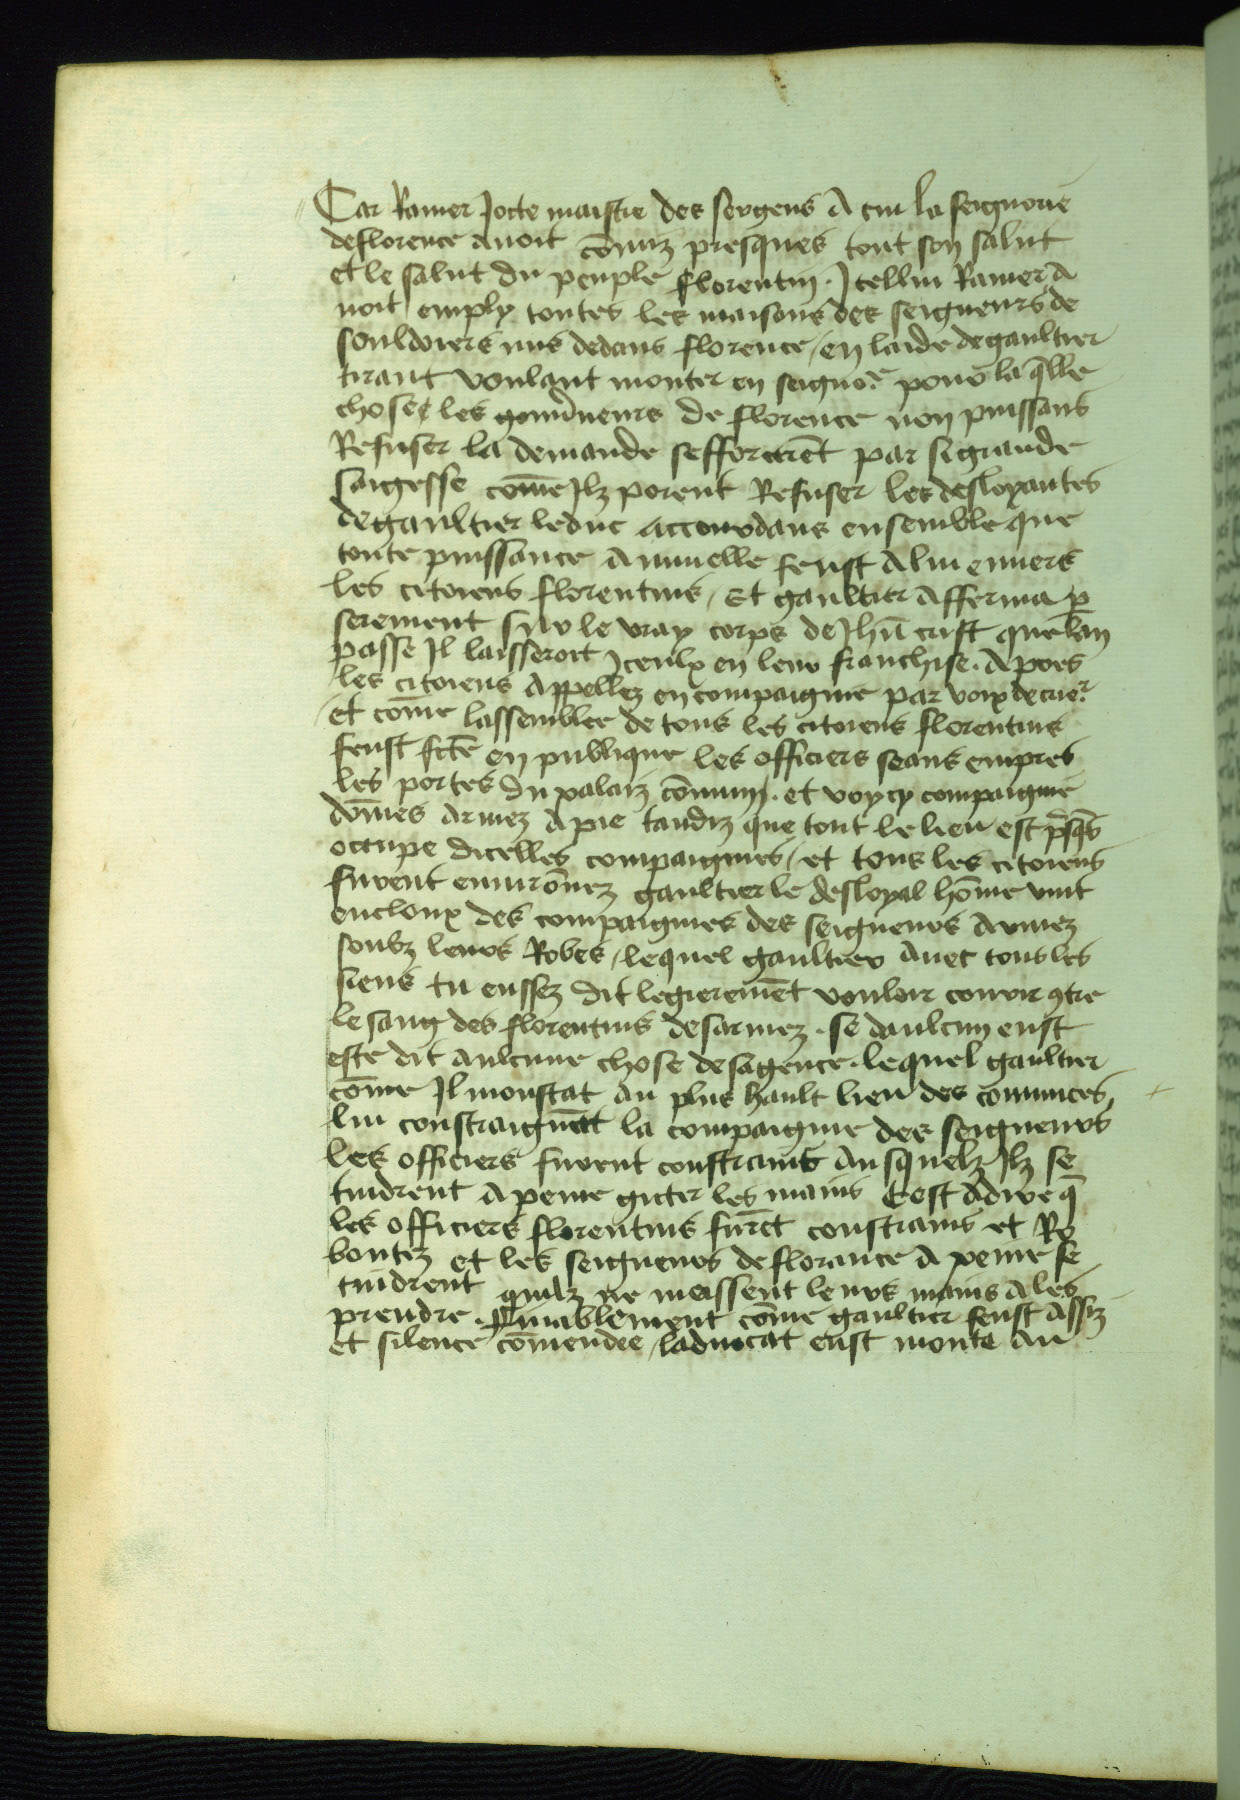 Car Ranier Jotte maistre des sergens A cui la seignorie
de florence auoit cōmiz presques tout son salut
et le salut du peuple florentin . Jcellui Ranier A
uoit emply toutes les maisons des seigneurs de
souldoiers mis dedans florence / en laide de gaultier
tirant voulant monter en seignor̄ pour la q̄lle
chose les gouu̓neurs de florence non puissans
Refuser la demande sefforcerēt par si grande
saigesse cōme Jlz porent Refuser les desloyautes
de gaultier le duc accourdans ensemble que
toute puissance Annuelle feust A lui enuers
les citoiens florentins / Et gaultier Afferma p̄
serement sur le vray corps de Jhū crist que lan
passe Jl laisseroit Jceulx en leur franchise . Apres
les citoiens Appellez en compaignie par voix de crie²
et cōme lassemblee de tous les citoiens florentins
feust fcte en publique les officiers seans empres
les portes du palaiz cōmun . et voycy compaignie
dōmes armez A pie tandiz que tout le lieu est p̄sq̄s
occupe dicelles compaignies / et tous les citoiens
furent enuirōnez gaultier le desloyal hōme vint
encloux des compaignies des seigneurs Armez
soubz leurs Robes / lequel gaultier Auec tous les
siens tu eussez dit legieremēt vouloir courir ꝯtre
le sang des florentins desarmez . se daulcun eust
este dit aulcune chose desagence . lequel gaultier
cōme Jl monstat au plus hault lieu des communes
lui constraignāt la compaignie des seigneurs
les officiers furent constrains Ausquelz Jlz se
tindrent A peine gicter les mains Cest Adire q̄
les officiers florentins furēt constrains et Re
boutez et les seigneurs de florance A peine se
tindrent quilz ne meissent leurs mains A les
prendre . Finablement cōme gaultier feust Assiz
et silence cōmendee / laduocat eust monte Au